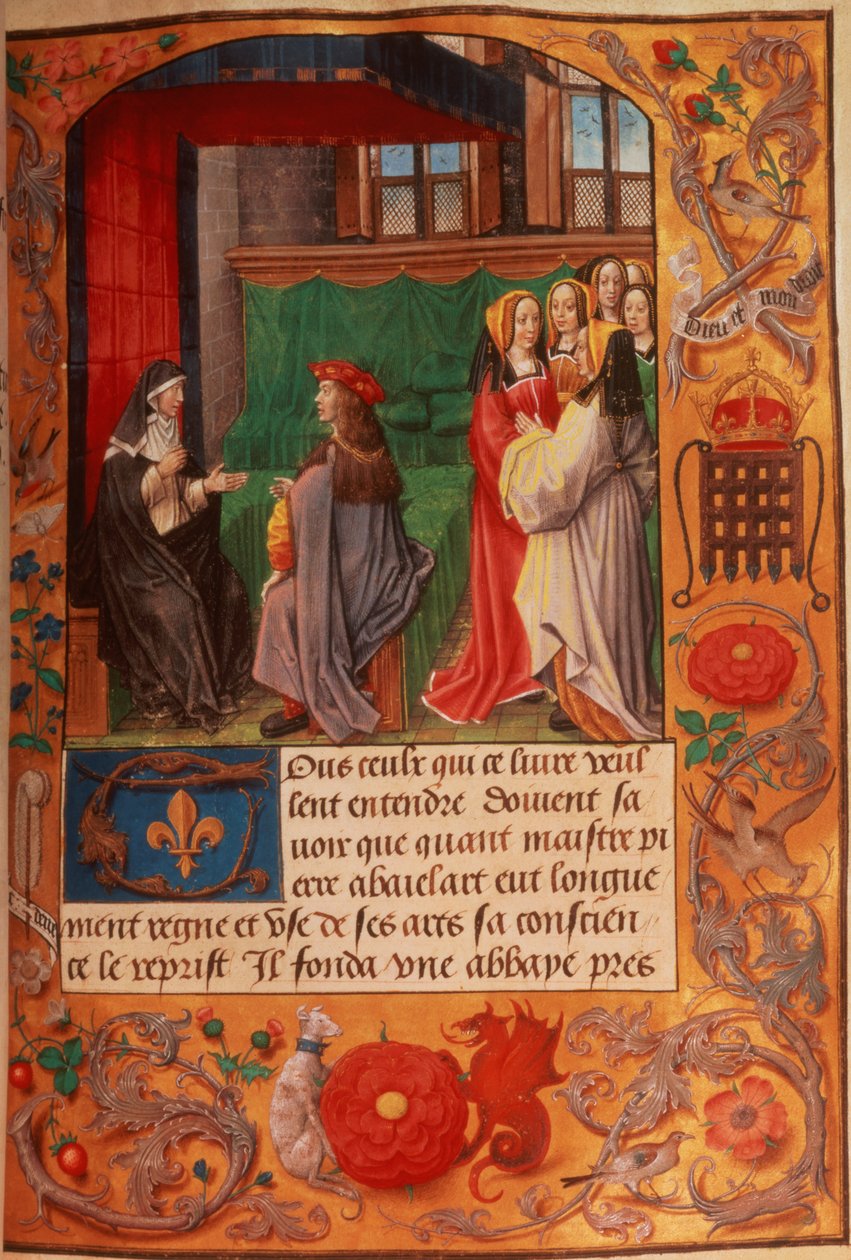 Dieu et mon
Ous ceulx qui ce liure veul
lent entendre doiuent sa
uoir que quant maistre pi
erre abaielart eut longue
ment regne et vse de ses arts sa conscien
ce le reprist Il fonda vne abbaye pres